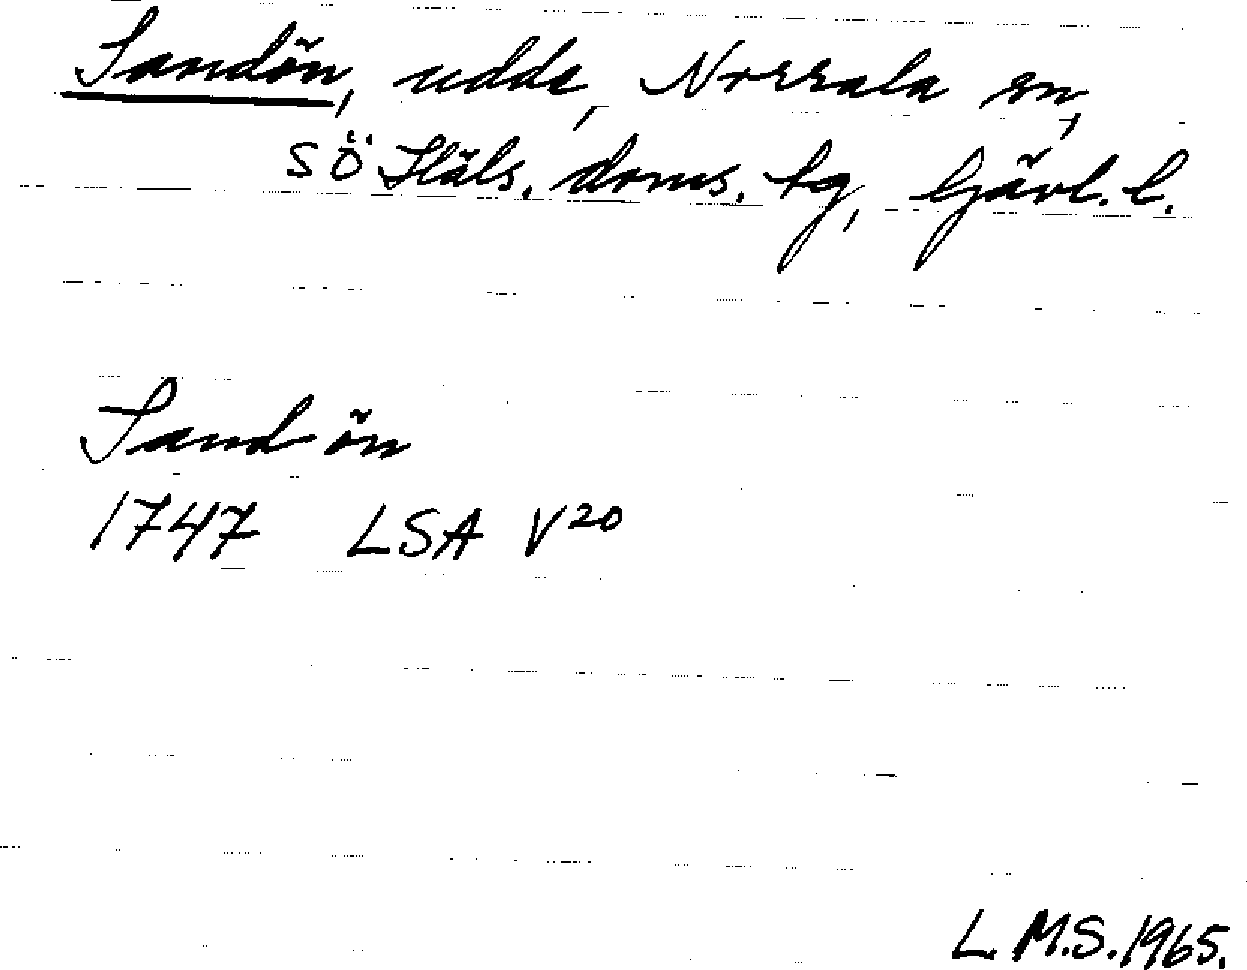 Sandön, udde, Norrala sn,
SÖ Häls. doms. tg, Gävl. l.
Sandön
1747 LSA V20
L.M.S. 1965.